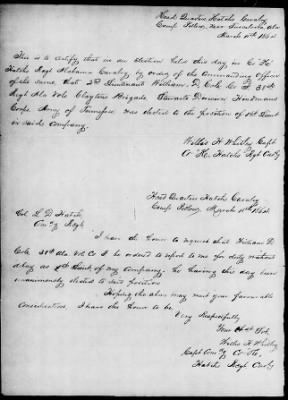 Head Quarters Hatchs Cavalry
Camp Pickens, near Tuscaloosa, Ala
March 11th 1864
This is to certify that in an election held this day, in Co. H
Hatchs Regt Alabama Cavalry by order of the Commanding Officer
of the same, that 2d Lieutenant William D. Cole Co. I. 38th
Regt Ala Vols Claytons Brigade Stewarts Division Hindmans
Corps Army of Tennessee was elected to the position of 1st Lieut
in said company.
Willis H. Whitby Capt
Co. H. Hatchs Regt Cavly
Head Quarters Hatchs Cavalry
Camp Pickens, March 11th 1864
Col. L. D. Hatch
Com'g Regt
I have the honor to request that William D.
Cole 38th Ala. Vol. Co. I. be ordered to report to me for duty without
delay as 1st Lieut of my company. He having this day been
unanimously elected to said position
Hoping the above may meet your favourable
Consideration I have the honor to be
Very Respectfully
Your Obt Svt.
Willis H. Whitby
Capt Com'g Co. H.
Hatchs Regt Cavly